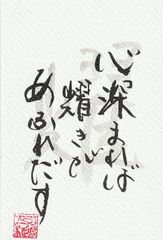 心深まれば
耀きも
あふれだす